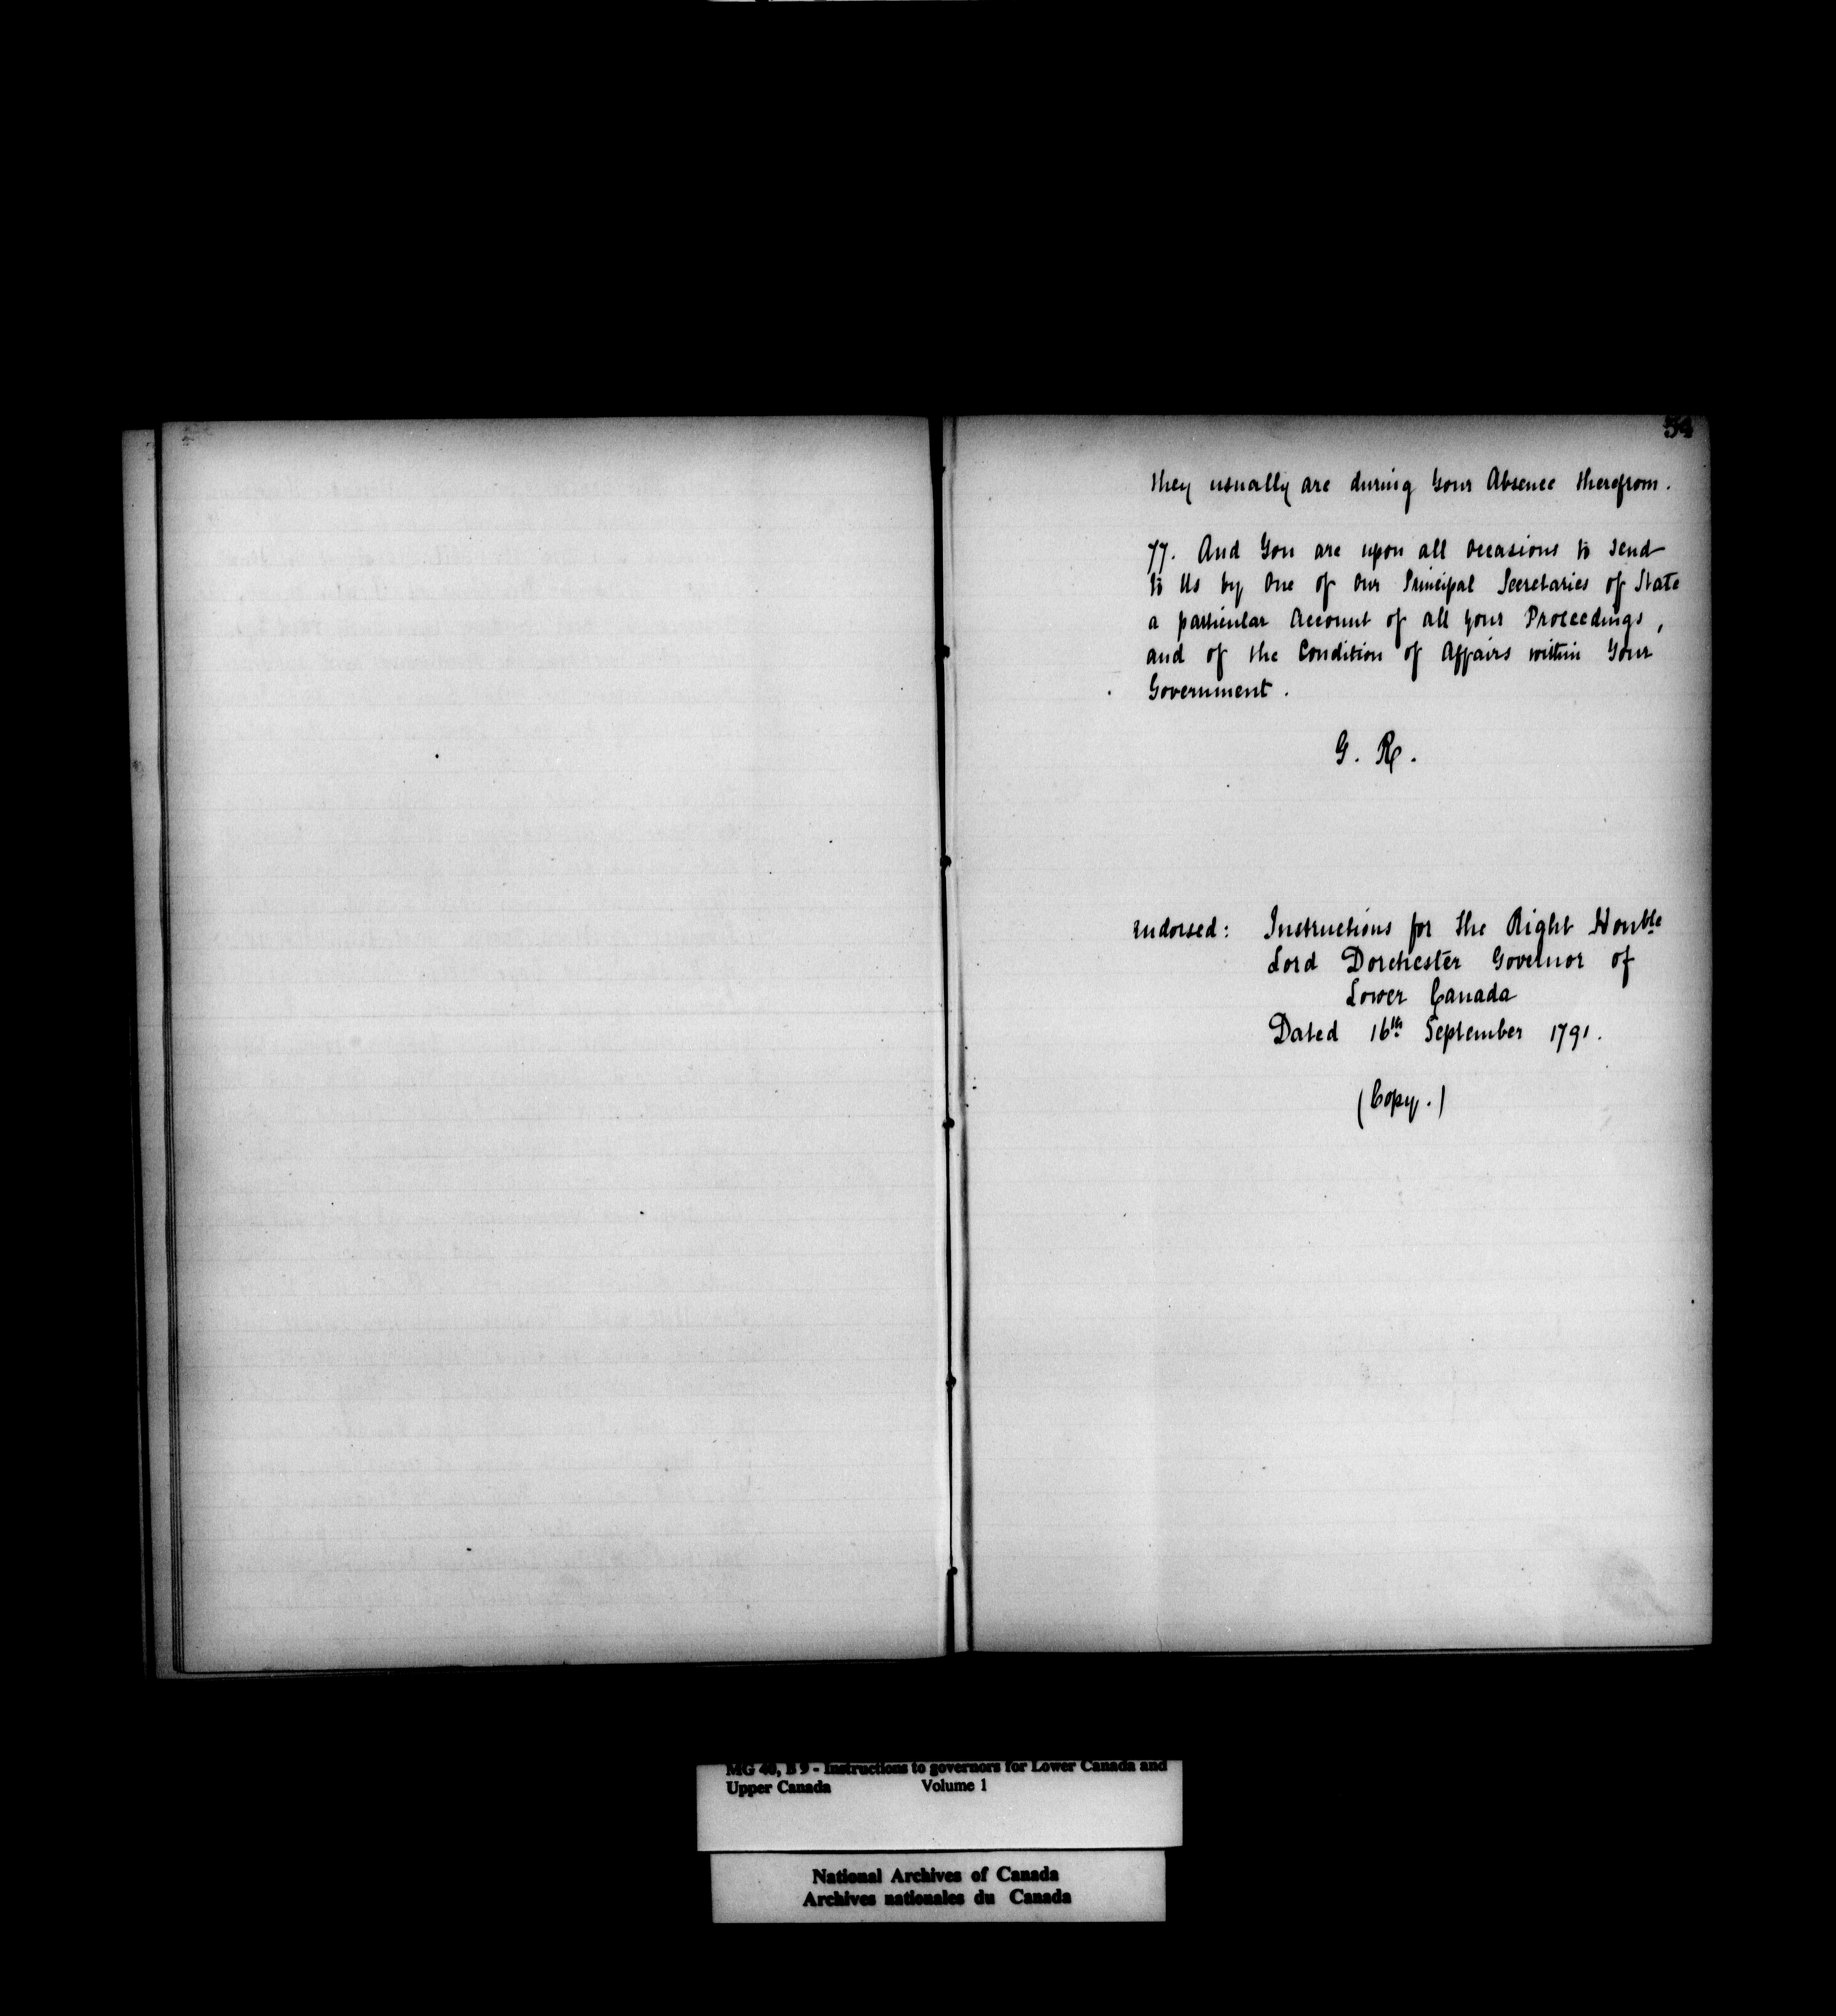 54
they usually are during Your Absence therefrom.
77. And You are upon all occasions to send
to Us by One of Our Principal Secretaries of State
a particular Account of all your Proceedings,
and of the Condition of Affairs within Your
Government.
G. R.
endorsed: Instructions for the Right Honble
Lord Dorchester Governor of
Lower Canada
Dated 16th September 1791.
(Copy.)
MG 40, B 9 - Instructions to governors for Lower Canada and
Upper Canada Volume 1
National Archives of Canada
Archives nationales du Canada